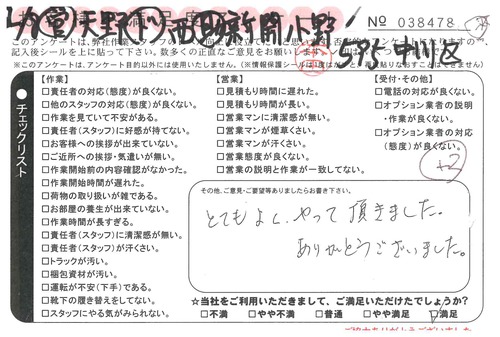 № 038478
このアンケートは、弊社作業スタッフ
記入後シールを上に貼って下さい。数多くの正直なご意見をお
※このアンケートは、アンケート目的以外には使用いたしません。(※情報保護シールは
5月 中川区
チェックリスト
【作業】
□責任者の対応(態度)が良くない。
□他のスタッフの対応(態度)が良くない。
□作業を見ていて不安がある。
□責任者(スタッフ)に好感が持てない。
□お客様への挨拶が出来ていない。
□ご近所への挨拶・気遣いが無い。
□作業開始前の内容確認がなかった。
□作業開始時間が遅れた。
□荷物の取り扱いが雑である。
□お部屋の養生が出来ていない。
□作業時間が長すぎる。
□責任者(スタッフ)に清潔感が無い。
□責任者(スタッフ)が汗くさい。
□トラックが汚い。
□梱包資材が汚い。
□運転が不安(下手)である。
□靴下の履き替えをしてない。
□スタッフにやる気がみられない。
【営業】
□見積もり時間に遅れた。
□見積もり時間が長い。
□営業マンに清潔感が無い。
□営業マンが煙草くさい。
□営業マンが汗くさい。
□営業態度が良くない。
□営業の説明と作業が一致してない。
【受付・その他】
□電話の対応が良くない。
□オプション業者の説明
・作業が良くない。
□オプション業者の対応
(態度)が良くない。
+2
その他、ご意見・ご要望等ありましたらお書き下さい。
とてもよく、やって頂きました。
ありがとうございました。
☆当社をご利用いただきまして、ご満足いただけたでしょうか?
□不満 □やや不満 □普通 □やや満足 □満足
ご協力ありがとうございました